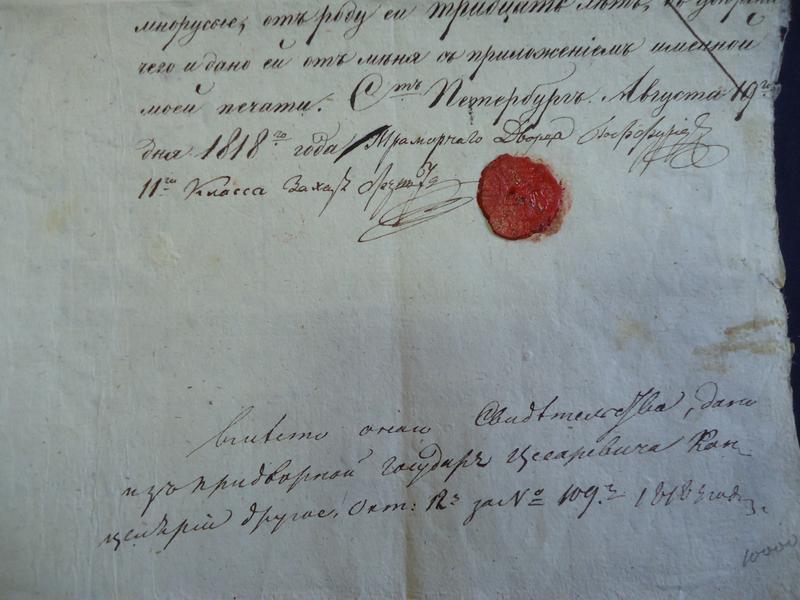 мнорусые, отъ роду ей тридцать лѣтъ, въ
чего и дано ей отъ меня съ приложеніемъ именной
моей печати. Стъ Петербургъ. Августа 19го
дня 1818го года Мраморнаго Дворца Гофъ-фурьеръ
11го Класса Захаръ
вмѣсто онаго Свидѣтельства, дано
изъ придворной государя Цесаревича Кан-
целяріи другое. Окт: 12 за № 109. 1818 года.
10000